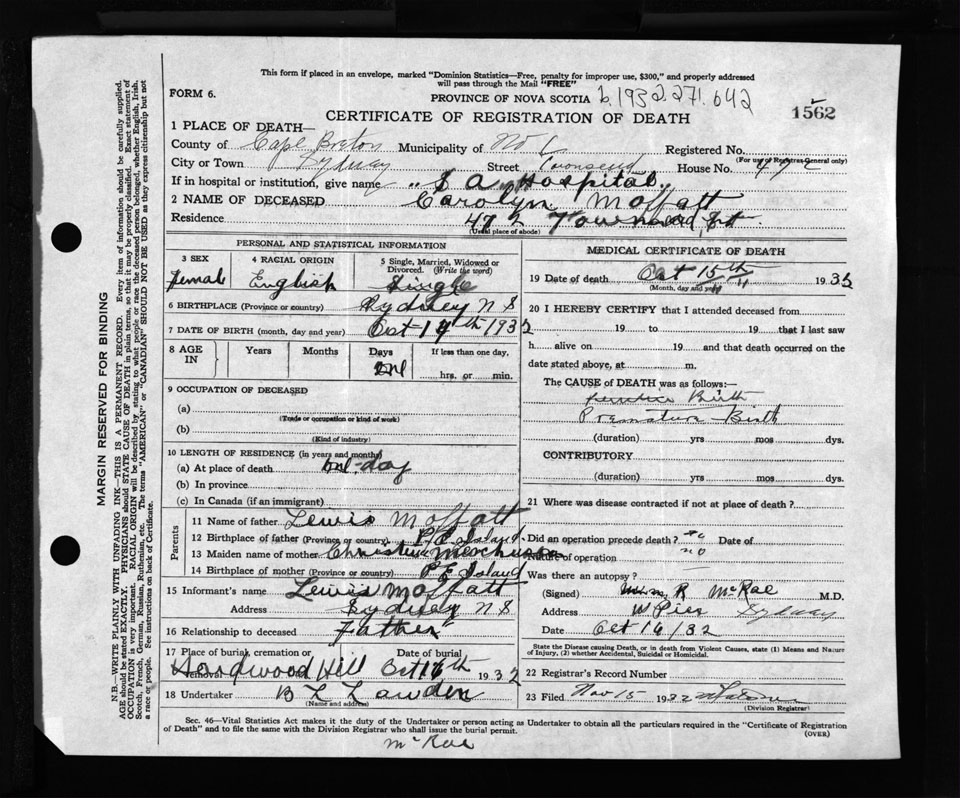 This form if placed in an envelope, marked "Dominion Statistics—Free, penalty for improper use, $300," and properly addressed
will pass through the Mail "FREE"
FORM 6.
PROVINCE OF NOVA SCOTIA b.1932.271.642
CERTIFICATE OF REGISTRATION OF DEATH
1562
1 PLACE OF DEATH—
County of Cape Breton Municipality of No 6 Registered No.
(For use of Registrar General only)
City or Town Sydney Street Townsend House No. 472
If in hospital or institution, give name "S A Hospital
2 NAME OF DECEASED Carolyn Moffatt
Residence 472 Townsend St
(Usual place of abode)
PERSONAL AND STATISTICAL INFORMATION
3 SEX
Female
4 RACIAL ORIGIN
English
5 Single, Married, Widowed or
Divorced. (Write the word)
Single
6 BIRTHPLACE (Province or country) Sydney N S
7 DATE OF BIRTH (month, day and year) Oct 14th 1932
8 AGE IN
Years Months Days If less than one day,
one hrs. or min.
9 OCCUPATION OF DECEASED
(a)
(Trade or occupation or kind of work)
(b)
(Kind of industry)
10 LENGTH OF RESIDENCE (in years and months)
(a) At place of death one-day
(b) In province
(c) In Canada (if an immigrant)
Parents
11 Name of father Lewis Moffatt
12 Birthplace of father (Province or country) P E Island
13 Maiden name of mother Christie
14 Birthplace of mother (Province or country) P E Island
15 Informant's name Lewis Moffatt
Address Sydney N S
16 Relationship to deceased Father
17 Place of burial, cremation or removal Date of burial
Hardwood Hill Oct 16th 1932
18 Undertaker B L Lawden
(Name and address)
MEDICAL CERTIFICATE OF DEATH
19 Date of death Oct 15th 1932
(Month, day and year)
20 I HEREBY CERTIFY that I attended deceased from
19 to 19 that I last saw
h alive on 19 and that death occurred on the
date stated above, at m.
The CAUSE of DEATH was as follows:—
Birth
Premature Birth
(duration) yrs mos dys.
CONTRIBUTORY
(duration) yrs mos dys.
21 Where was disease contracted if not at place of death?
Did an operation precede death? no Date of
Nature of operation no
Was there an autopsy?
(Signed) Wm. R McRae M.D.
Address W Pier Sydney
Date Oct 16/32
State the Disease causing Death, or in death from Violent Causes, state (1) Means and Nature
of Injury, (2) whether Accidental, Suicidal or Homicidal.
22 Registrar's Record Number
23 Filed Nov 15 1932
(Division Registrar)
Sec. 46—Vital Statistics Act makes it the duty of the Undertaker or person acting as Undertaker to obtain all the particulars required in the "Certificate of Registration
of Death" and to file the same with the Division Registrar who shall issue the burial permit.
(OVER)
McRae
MARGIN RESERVED FOR BINDING
N.B.—WRITE PLAINLY WITH UNFADING INK—THIS IS A PERMANENT RECORD. Every item of information should be carefully supplied.
AGE should be stated EXACTLY. PHYSICIANS should STATE CAUSE OF DEATH in plain terms, so that it may be properly classified. Exact statement of
OCCUPATION is very important. RACIAL ORIGIN will be described by stating to what people or race the deceased person belonged, whether English, Irish,
Scotch, French, German, Russian, Ruthenian, etc. The terms "AMERICAN" or "CANADIAN" SHOULD NOT BE USED as they express citizenship but not
a race or people. See instructions on back of Certificate.